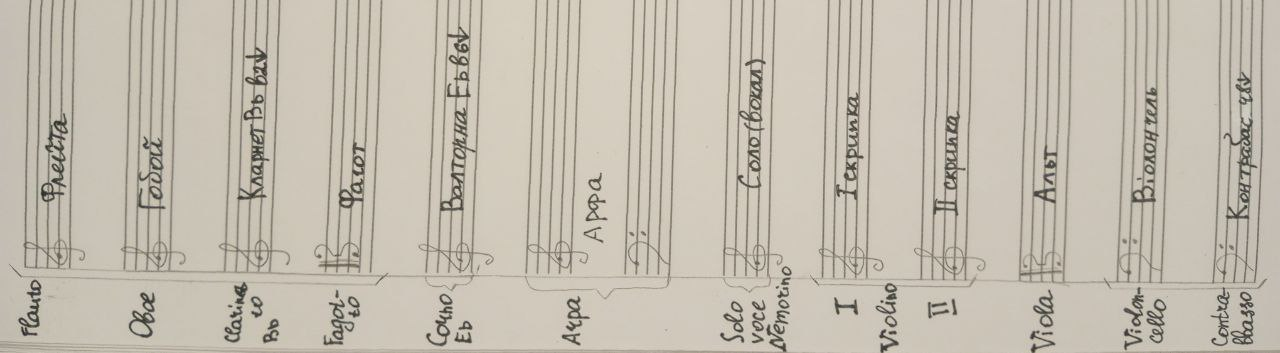 Flauto
Флейта
Oboe
Гобой
Clarinetto
Bb
Кларнет Bb в2↓
Fagot-
to
Фагот
Corno
Eb
Валторна Eb в6↓
Arpa
Арфа
Solo
voce
Nemorino
Соло (вокал)
Violino
I
I скрипка
II
II скрипка
Viola
Альт
Violon-
cello
Віолончель
Contra-
bbasso
Контрабас ч8↓